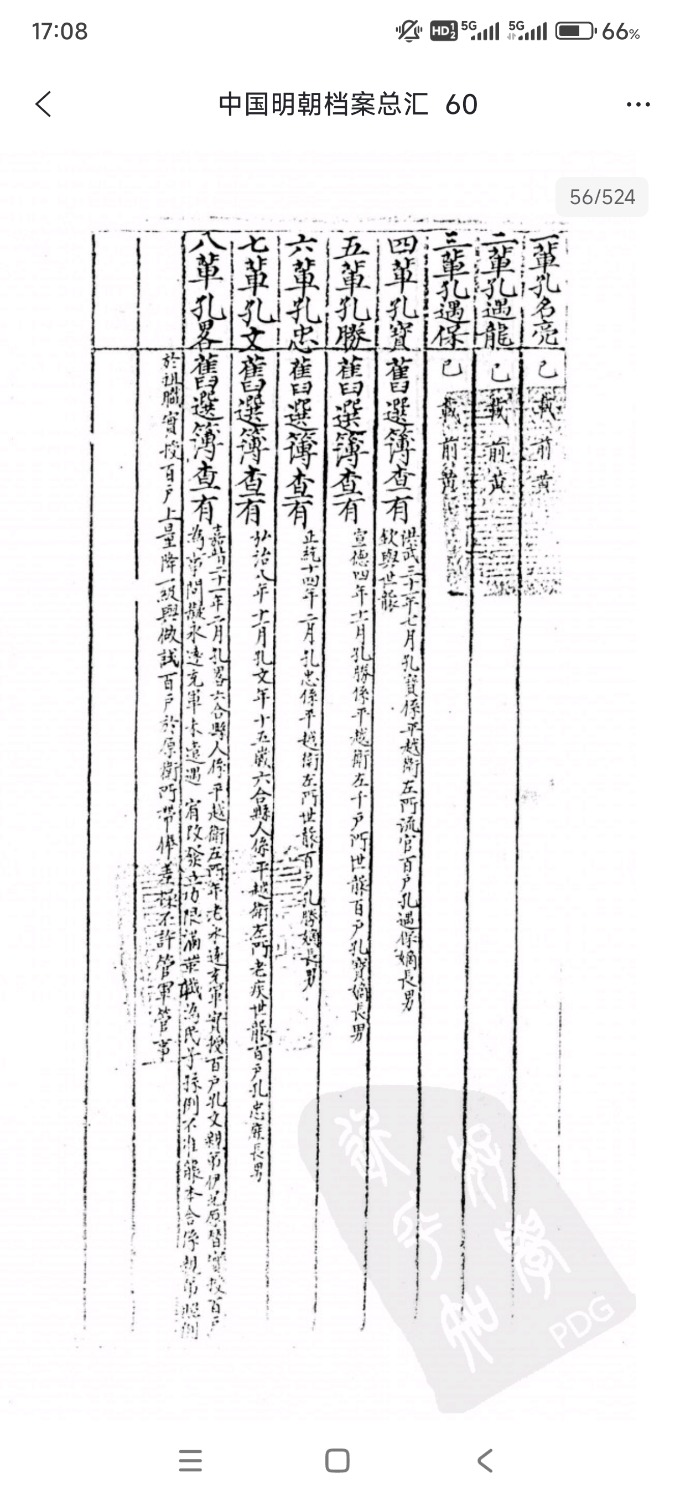 17:08
HD 1 2 5G 5G 66%
中国明朝档案总汇 60
56/524
一輩孔名亮
已載前黃
二輩孔遇龍
已載前黃
三輩孔遇保
已載前黃
四輩孔寶
舊選簿查有
洪武三十一年七月孔寶係平越衛左所流官百戶孔遇保嫡長男
欽與世襲
五輩孔勝
舊選簿查有
宣德四年十一月孔勝係平越衛左千戶所世襲百戶孔寶嫡長男
六輩孔忠
舊選簿查有
正統十四年二月孔忠係平越衛左所世襲百戶孔勝嫡長男
七輩孔文
舊選簿查有
弘治八年十一月孔文年十五歲六合縣人係平越衛左所老疾世襲百戶孔忠庶長男
八輩孔畧
舊選簿查有
嘉靖二十一年二月孔畧六合縣人係平越衛左所年老永遠充軍實授百戶孔文親弟伊兄原替實授百戶
為事問擬永遠充軍未遣遇宥改發立功限滿革職為民子孫例不准襲本舍係親弟照例
於祖職實授百戶上量降一級與做試百戶於原衛所帶俸差操不許管軍管事
PDG